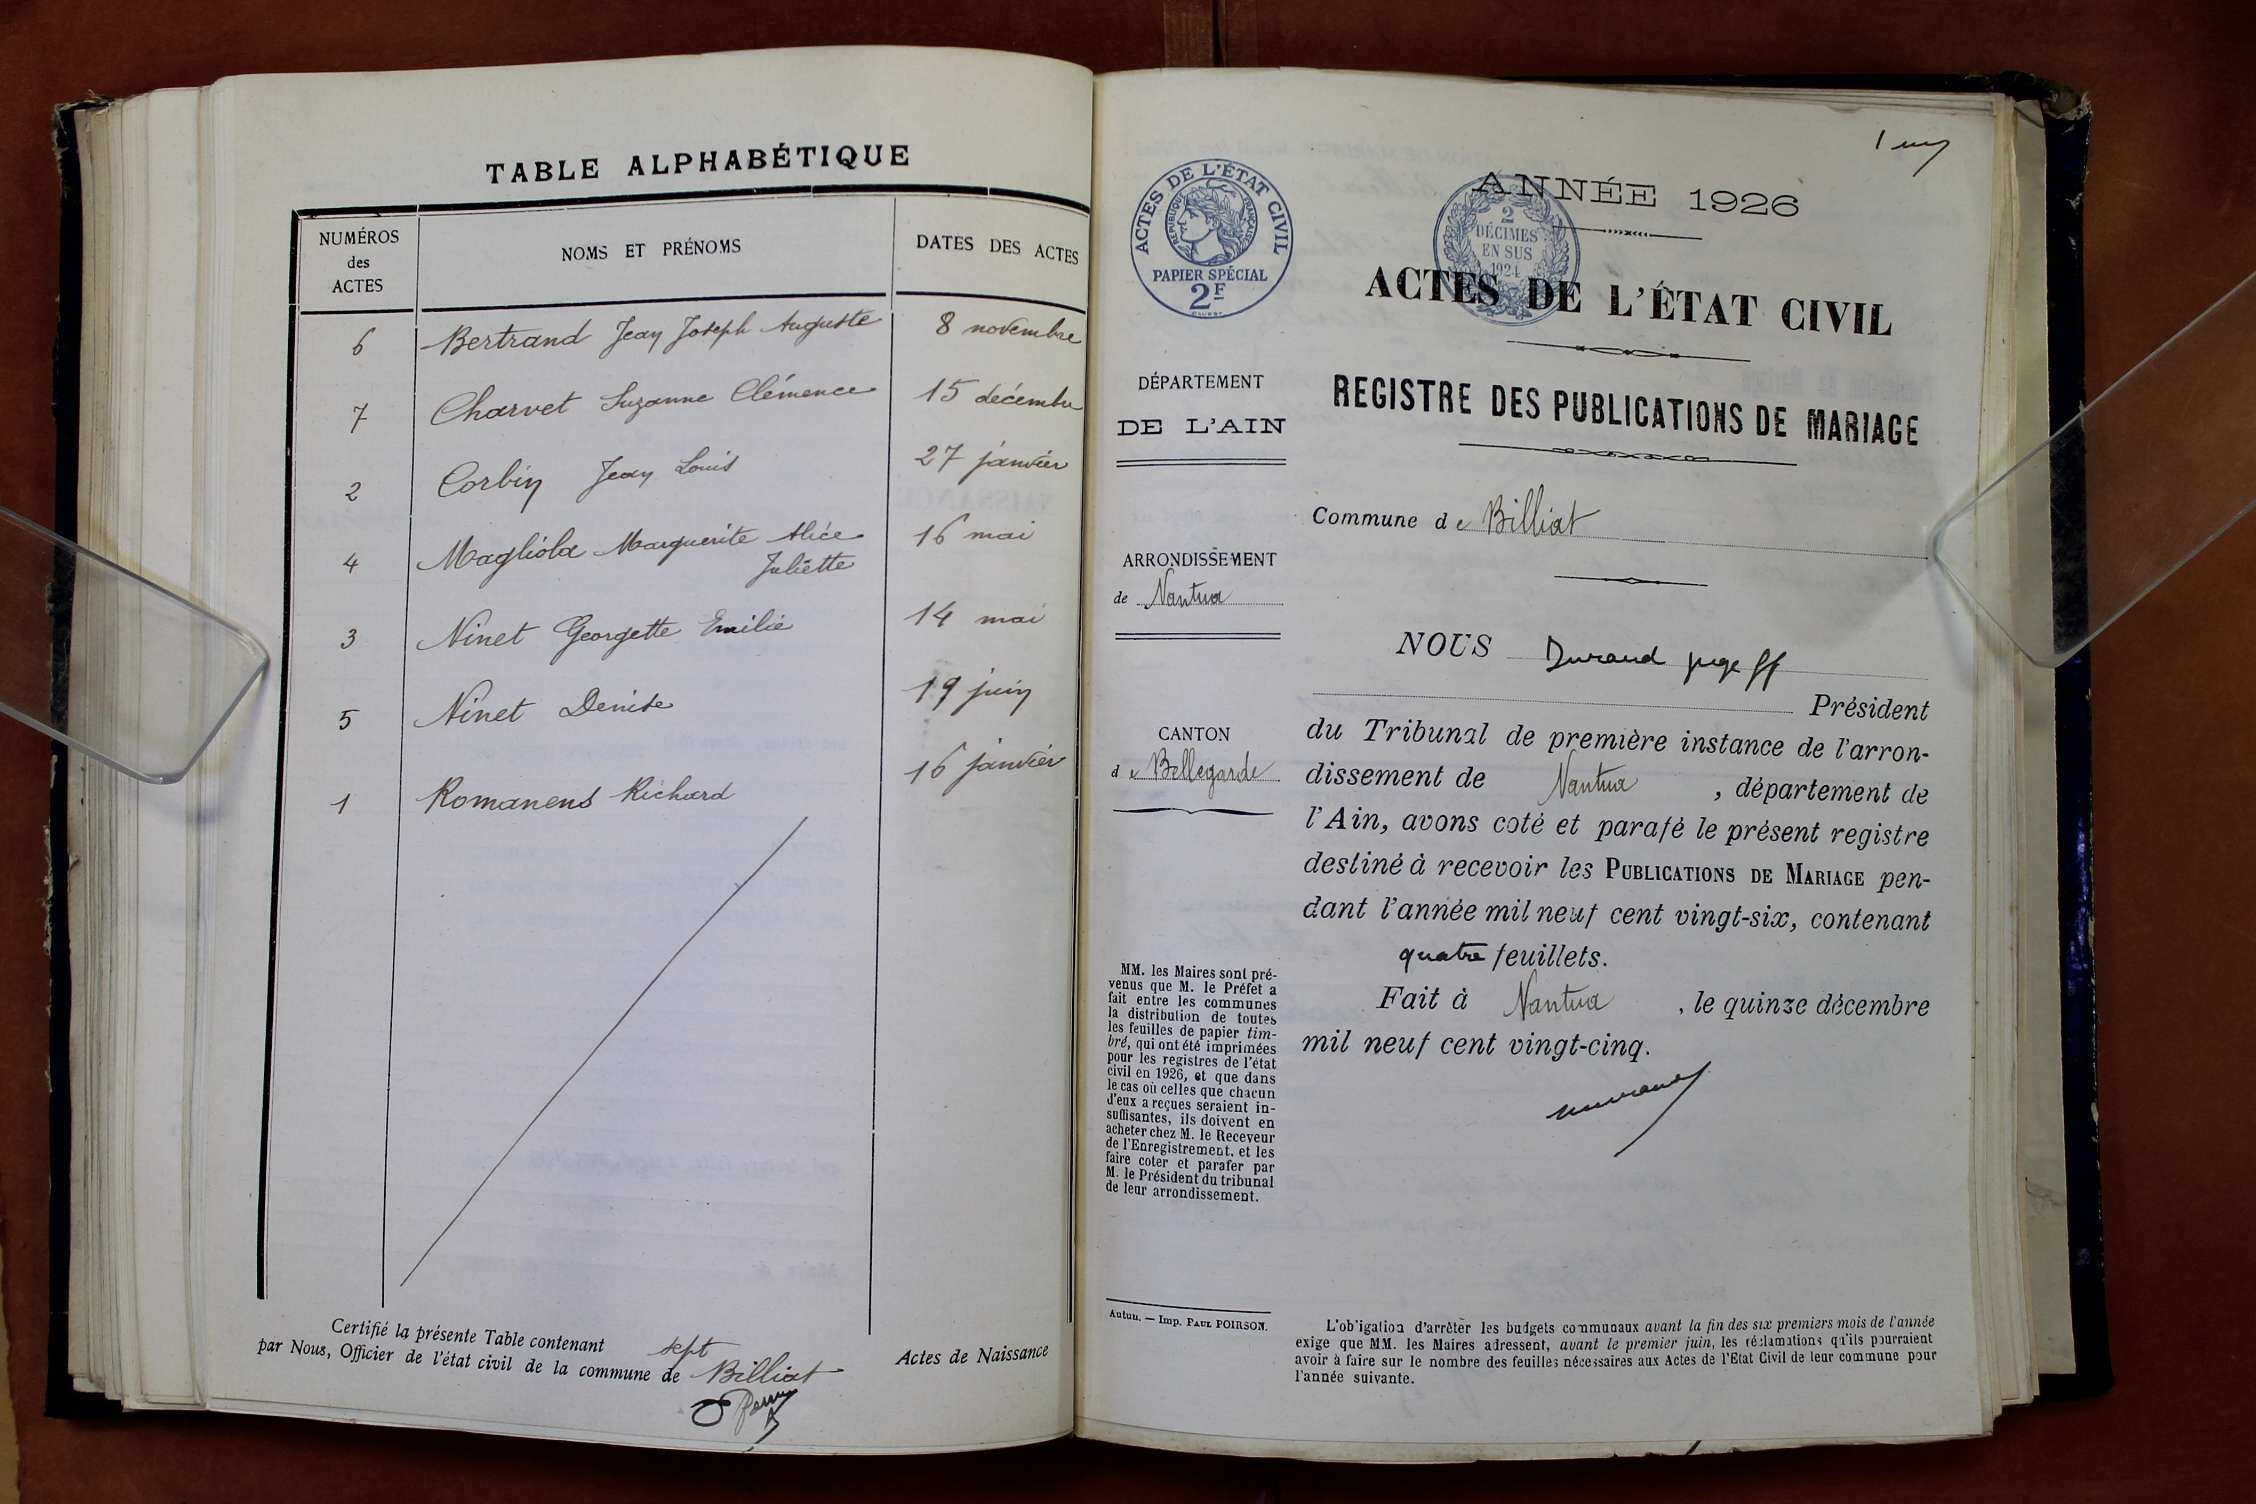 TABLE ALPHABÉTIQUE
NUMÉROS
des
ACTES
NOMS ET PRÉNOMS
DATES DES ACTES
6 Bertrand Jean Joseph Auguste 8 novembre
7 Charvet Suzanne Clémence 15 décembre
2 Corbin Jean Louis 27 janvier
4 Magliola Marguerite Alice 16 mai
Juliette
3 Ninet Georgette Emilie 14 mai
5 Ninet Denise 19 juin
1 Romanens Richard 16 janvier
Certifié la présente Table contenant sept Actes de Naissance
par Nous, Officier de l'état civil de la commune de Billiat
ACTES DE L'ÉTAT CIVIL
RÉPUBLIQUE FRANÇAISE
PAPIER SPÉCIAL
2F
2
DÉCIMES
EN SUS
1924
DÉPARTEMENT
DE L'AIN
ARRONDISSEMENT
de Nantua
CANTON
de Bellegarde
MM. les Maires sont pré-
venus que M. le Préfet a
fait entre les communes
la distribution de toutes
les feuilles de papier tim-
bré, qui ont été imprimées
pour les registres de l'état
civil en 1926, et que dans
le cas où celles que chacun
d'eux a reçues seraient in-
suffisantes, ils doivent en
acheter chez M. le Receveur
de l'Enregistrement, et les
faire coter et parafer par
M. le Président du tribunal
de leur arrondissement.
Autun. — Imp. PAUL POIRSON.
1
ANNÉE 1926
ACTES DE L'ÉTAT CIVIL
REGISTRE DES PUBLICATIONS DE MARIAGE
Commune de Billiat
NOUS Durand juge ff
Président
du Tribunal de première instance de l'arron-
dissement de Nantua, département de
l'Ain, avons coté et parafé le présent registre
destiné à recevoir les PUBLICATIONS DE MARIAGE pen-
dant l'année mil neuf cent vingt-six, contenant
quatre feuillets.
Fait à Nantua, le quinze décembre
mil neuf cent vingt-cinq.
L'obligation d'arrêter les budgets communaux avant la fin des six premiers mois de l'année
exige que MM. les Maires adressent, avant le premier juin, les réclamations qu'ils pourraient
avoir à faire sur le nombre des feuilles nécessaires aux Actes de l'Etat Civil de leur commune pour
l'année suivante.